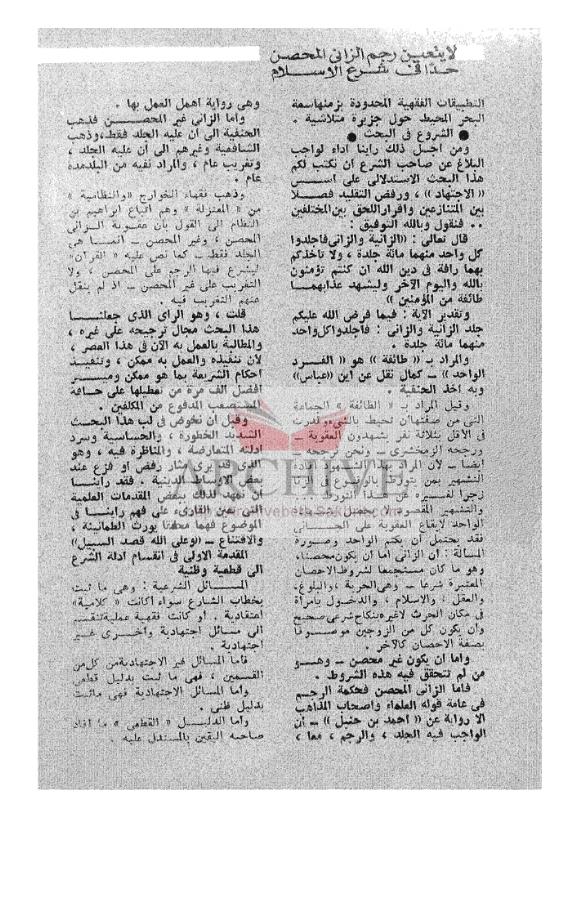 لايتعين رجم الزاني المحصن
حدّا في شرع الاسلام
التطبيقات الفقهية المحدودة بزمنها سمة
البحر المحيط حول جزيرة متلاشية .
● الشروع في البحث ●
ومن اجل ذلك راينا اداء لواجب
البلاغ عن صاحب الشرع ان نكتب لكم
هذا البحث الاستدلالي على اسس
(( الاجتهاد )) ، ورفض التقليد فصلا
بين المتنازعين واقرارا للحق بين المختلفين
.. فنقول وبالله التوفيق :
قال تعالى : ((الزانية والزاني فاجلدوا
كل واحد منهما مائة جلدة ، ولا تاخذكم
بهما رافة في دين الله ان كنتم تؤمنون
بالله واليوم الآخر وليشهد عذابهما
طائفة من المؤمنين ))
وتقدير الآية : فيما فرض الله عليكم
جلد الزانية والزاني : فاجلدوا كل واحد
منهما مائة جلدة .
والمراد بـ (( طائفة )) هو (( الفرد
الواحد )) ــ كما نقل عن ابن ((عباس))
وبه اخذ الحنفية .
وقيل المراد بـ (( الطائفة )) الجماعة
التي من صفتها ان تحيط بالشيء وقدرت
في الاقل بثلاثة نفر يشهدون العقوبة ــ
ورجحه الزمخشري ــ ونحن نرجحه
ايضا ــ لأن المراد بهذا الشهود زيادة
التشهير بمن يتورط بالوقوع في الزنا
زجرا لغيره عن هذا التورط
والتشهير المقصود لا يحصل
الواحد لايقاع العقوبة على الجاني
فقد يحتمل أن يكتم الواحد وصورة
المسالة : أن الزاني اما ان يكون محصنا،
وهو ما كان مستجمعا لشروط الاحصان
المعتبرة شرعا ــ وهي الحرية ، والبلوغ،
والعقل ، والاسلام ، والدخول بامرأة
في مكان الحرث لا غيره بنكاح شرعي صحيح
وأن يكون كل من الزوجين موصوفا
بصفة الاحصان كالآخر .
واما ان يكون غير محصن ــ وهــو
من لم تتحقق فيه هذه الشروط .
فاما الزاني المحصن فحكمة الرجـم
في عامة قوله العلماء واصحاب المذاهب
الا رواية عن (( احمد بن حنبل )) ــ أن
الواجب فيه الجلد ، والرجم ، معا ،
وهى رواية اهمل العمل بها .
واما الزاني غير المحصــن فذهب
الحنفية الى أن عليه الجلد فقط، وذهب
الشافعية وغيرهم الى أن عليه الجلد ،
وتغريب عام ، والمراد نفيه من البلد مدة
عام .
وذهب نقهاء الخوارج «والنظامية »
من « المعتزلة » وهم اتباع ابراهيم بن
النظام الى القول بأن عقوبة الزاني
المحصن ، وغير المحصن ــ انمـا هى
الجلد فقط ــ كما نص عليه « القرآن»
ليشرع فيها الرجم على المحصن ، ولا
التغريب على غير المحصن ــ اذ لم ينقل
عنهم التغريب فيه .
قلت ، وهو الراى الذى جعلنـا
هذا البحث مجال ترجيحه على غيره ،
والمطالبة بالعمل به الآن في هذا العصر ،
لأن تنفيذه والعمل به ممكن ، وتنفيـذ
احكام الشريعة بما هو ممكن وميسـر
افضل الف مرة من تعطيلها على حـافة
المستصعب المدفوع من المكلفين .
وقبل ان نخوض في لب هذا البحـث
الشديد الخطورة ، والحساسية وسرد
ادلته المتعارضة ، والمناظرة فيه ، وهو
الذى قد يرى مثار رفض او فزع عند
بعض الدينية . فقد راينـا
ان نمهد لذلك ببعض المقدمات العلمية
التى تعين القارىء على فهم راينا في
الموضوع فهما محققا يورث الطمانينة ،
والاقتناع ــ ((وعلى الله قصد السبيل))
المقدمة الاولى في انقسام ادلة الشرع
الى قطعية وظنية
المسائل الشرعية : وهى ما ثبت
بخطاب الشارع سواء أكانت « كلامية»
اعتقادية . او كانت فقهية عملية تنقسم
الى مسائل اجتهادية وأخـرى غير
اجتهادية .
فاما المسائل غير الاجتهادية من كل من
القسمين ، فهى ما ثبت بدليل قطعى
واما المسائل الاجتهادية فهى ما ثبت
بدليل ظنى .
واما الدليـل « القطعى » ما افاد
صاحبه اليقين بالمستدل عليه .
ARCHIVE